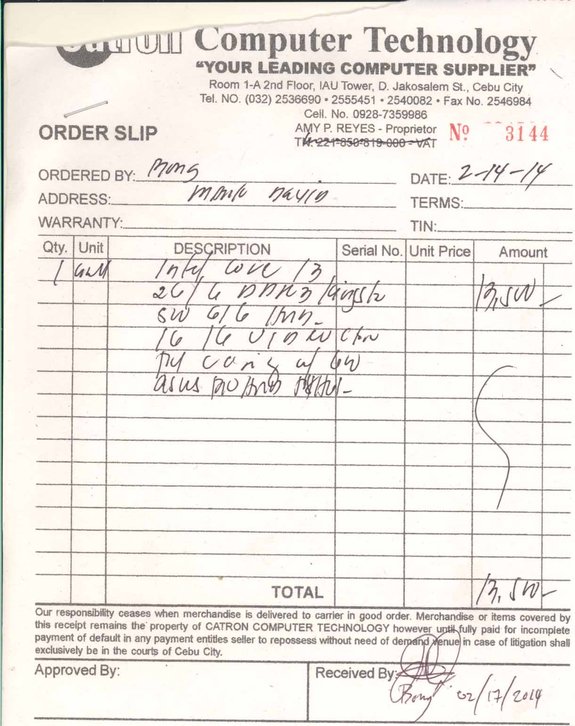 Catron Computer Technology
"YOUR LEADING COMPUTER SUPPLIER"
Room 1-A 2nd Floor, IAU Tower, D. Jakosalem St., Cebu City
Tel. NO. (032) 2536690 • 2555451 • 2540082 • Fax No. 2546984
Cell. No. 0928-7359986
ORDER SLIP
AMY P. REYES - Proprietor
Nº 3144
ORDERED BY: Bong
DATE: 2-14-14
ADDRESS:
TERMS:
WARRANTY:
TIN:
Qty. Unit DESCRIPTION Serial No. Unit Price Amount
1 Intel Core i3
DDR3 13,500-
500 GIG HDD
1G
w/ 600
ASUS
TOTAL 13,500-
Our responsibility ceases when merchandise is delivered to carrier in good order. Merchandise or items covered by
this receipt remains the property of CATRON COMPUTER TECHNOLOGY however until fully paid for incomplete
payment of default in any payment entitles seller to repossess without need of demand venue in case of litigation shall
exclusively be in the courts of Cebu City.
Approved By:
Received By:
Bong 02/17/2014